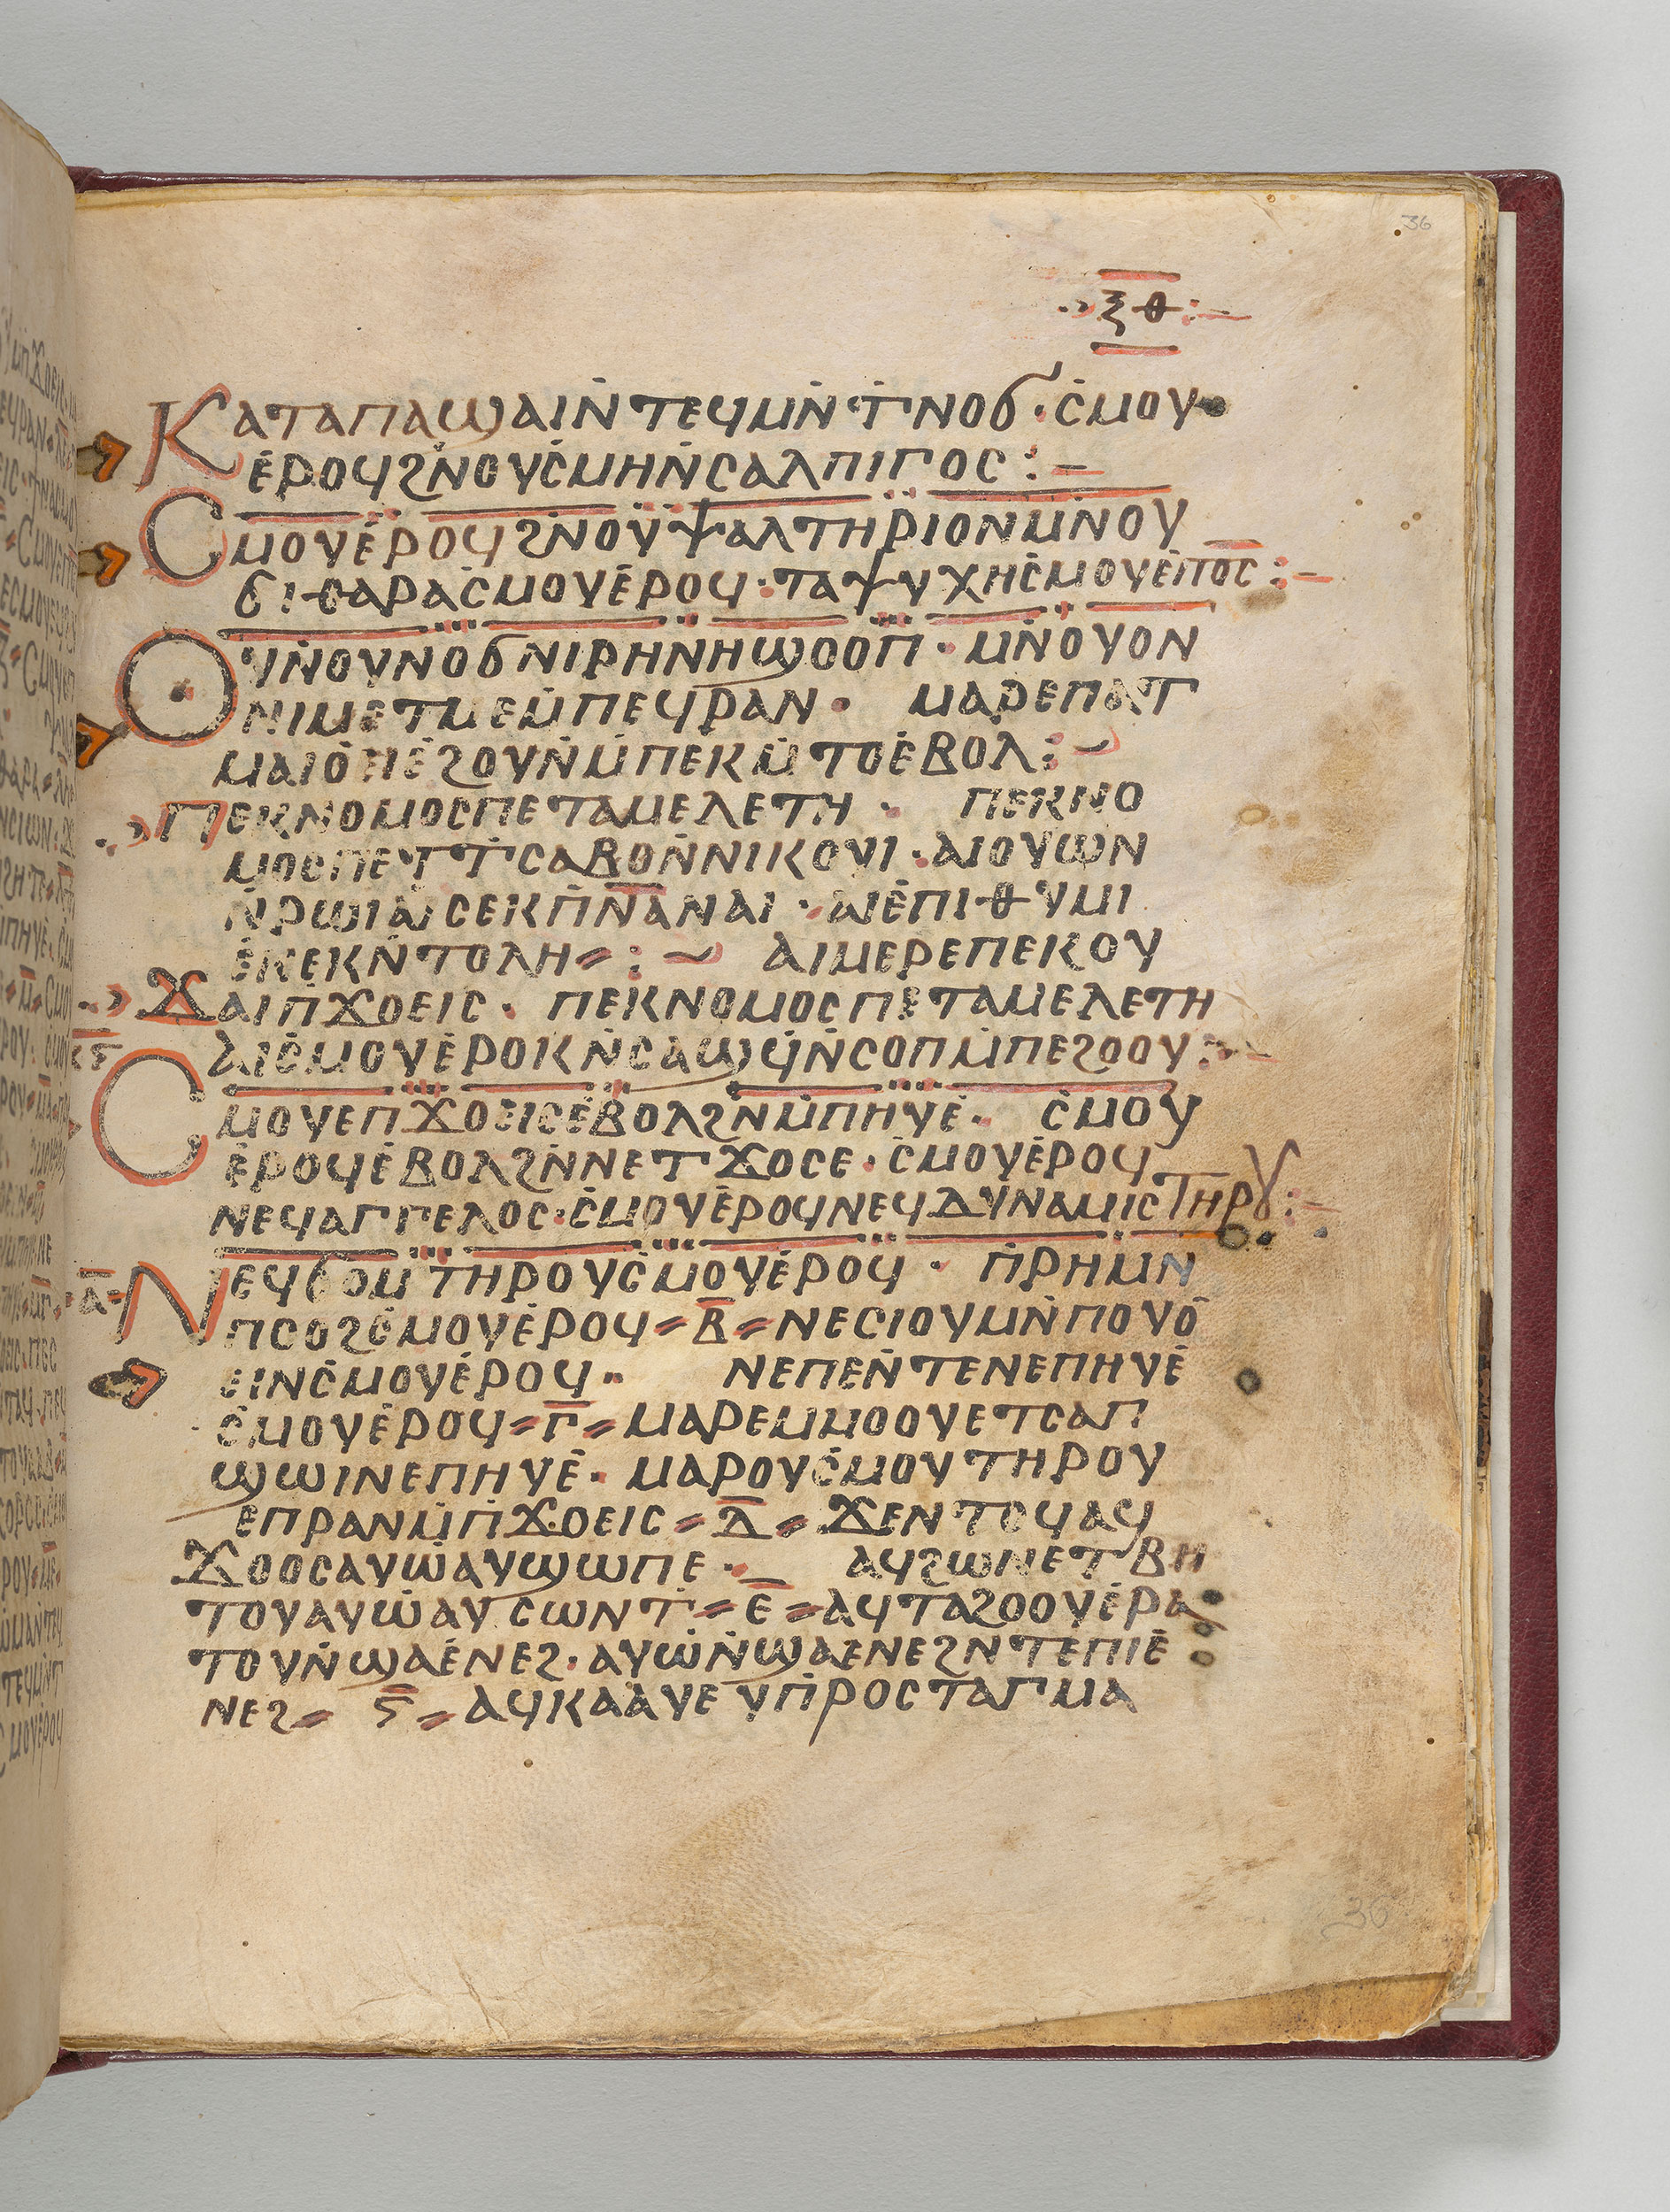 36
ⲝⲑ
Ⲕⲁⲧⲁⲡⲁϣⲁⲓⲛ̇ⲧⲉϥⲙⲛ̇ⲧ̇ⲛⲟϭ · ⲥ̇ⲙⲟⲩ
ⲉ̇ⲣⲟϥϩⲛⲟⲩⲥ̇ⲙⲏⲛ̇ⲥⲁⲗⲡⲓⲅⲟⲥ :–
Ⲥⲙⲟⲩⲉ̇ⲣⲟϥϩⲛⲟⲩⲯⲁⲗⲧⲏⲣⲓⲟⲛⲙⲛ̇ⲟⲩ
ϭⲓⲑⲁⲣⲁⲥ̇ⲙⲟⲩⲉ̇ⲣⲟϥ · ⲧⲁⲯⲩⲭⲏⲥ̇ⲙⲟⲩⲉ̇ⲡⲟ̅ⲥ̅ :–
Ⲟⲩⲛ̇ⲟⲩⲛⲟϭⲛⲓⲣⲏⲛⲏϣⲟⲟⲡ · ⲙⲛ̇ⲟⲩⲟⲛ
ⲛⲓⲙⲉⲧⲙⲉⲙ̇ⲡⲉϥⲣⲁⲛ · ⲙⲁⲣⲉⲡⲁⲧ
ⲙⲁⲓⲟ̇ⲉⲓⲉ̇ϩⲟⲩⲛ̇ⲙ̇ⲡⲉⲕⲙ̇ⲧⲟⲉ̇ⲃⲟⲗ :~
Ⲡⲉⲕⲛⲟⲙⲟⲥⲡⲉⲧⲁⲙⲉⲗⲉⲧⲏ · ⲡⲉⲕⲛⲟ
ⲙⲟⲥⲡⲉⲧⲧ̇ⲥⲁⲃⲟⲛ̇ⲛⲓⲕⲟⲩⲓ · ⲁⲓⲟⲩⲱⲛ
ⲛ̇ⲣⲱⲓⲁⲓⲥⲉⲕⲡ̅ⲛ̅ⲁ̅ⲛⲁⲓ · ⲁⲓⲉ̇ⲡⲓⲑⲩⲙⲓ
ⲉ̇ⲛⲉⲕⲛ̇ⲧⲟⲗⲏ⸗ :~ ⲁⲓⲙⲉⲣⲉⲡⲉⲕⲟⲩ
Ϫⲁⲓⲡ̇ϫⲟⲉⲓⲥ · ⲡⲉⲕⲛⲟⲙⲟⲥⲡⲉⲧⲁⲙⲉⲗⲉⲧⲏ
ⲁⲓⲥ̇ⲙⲟⲩⲉ̇ⲣⲟⲕⲛ̇ⲥⲁϣϥ̇ⲛ̇ⲥⲟⲡⲙ̇ⲡⲉϩⲟⲟⲩ :–
Ⲥⲙⲟⲩⲉⲡϫⲟⲉⲓⲥⲉ̇ⲃⲟⲗϩⲛⲙ̇ⲡⲏⲩⲉ̇ · ⲥ̇ⲙⲟⲩ
ⲉ̇ⲣⲟϥⲉ̇ⲃⲟⲗϩⲛ̇ⲛⲉⲧϫⲟⲥⲉ · ⲥ̇ⲙⲟⲩⲉ̇ⲣⲟϥ
ⲛⲉϥⲁⲅⲅⲉⲗⲟⲥ · ⲥ̇ⲙⲟⲩⲉ̇ⲣⲟϥⲛⲉϥⲇⲩⲛⲁⲙⲓⲥⲧⲏⲣⲩ :–
ⲁ̅ Ⲛⲉϥϭⲟⲙⲧⲏⲣⲟⲩⲥ̇ⲙⲟⲩⲉ̇ⲣⲟϥ · ⲡ̇ⲣⲏⲙⲛ
ⲡⲟⲟϩⲥ̇ⲙⲟⲩⲉ̇ⲣⲟϥ⸗ ⲃ̅ ⸗ⲛⲉⲥⲓⲟⲩⲙⲛ̇ⲡⲟⲩⲟ̇
ⲉⲓⲛⲥ̇ⲙⲟⲩⲉ̇ⲣⲟϥ · ⲛⲉⲡⲉⲛ̇ⲧⲉⲛⲉⲡⲏⲩⲉ̇
ⲥ̇ⲙⲟⲩⲉ̇ⲣⲟϥ⸗ ⲅ̅ ⸗ⲙⲁⲣⲉⲙⲙⲟⲟⲩⲉⲧⲥⲁⲡ
ϣⲱⲓⲛⲉⲡⲏⲩⲉ̇ · ⲙⲁⲣⲟⲩⲥ̇ⲙⲟⲩⲧⲏⲣⲟⲩ
ⲉⲡⲣⲁⲛⲙ̇ⲡ̇ϫⲟⲉⲓⲥ⸗ ⲇ̅ ⸗ϫⲉⲛⲧⲟϥⲁϥ
ϫⲟⲟⲥⲁⲩⲱ̇ⲁⲩϣⲱⲡⲉ · ⲁϥϩⲱⲛⲉⲧⲃⲏ
ⲧⲟⲩⲁⲩⲱ̇ⲁⲩⲥⲱⲛⲧ̇⸗ ⲉ̅ ⸗ⲁϥⲧⲁϩⲟⲟⲩⲉ̇ⲣⲁ
ⲧⲟⲩⲛ̇ϣⲁⲉ̇ⲛⲉϩ · ⲁⲩⲱ̇ⲛ̇ϣⲁⲉⲛⲉϩⲛⲧⲉⲡⲓⲉ̇
ⲛⲉϩ⸗ ⲋ̅ ⸗ⲁϥⲕⲁⲁⲩⲉⲩⲡ̇ⲣⲟⲥⲧⲁⲅⲙⲁ
36